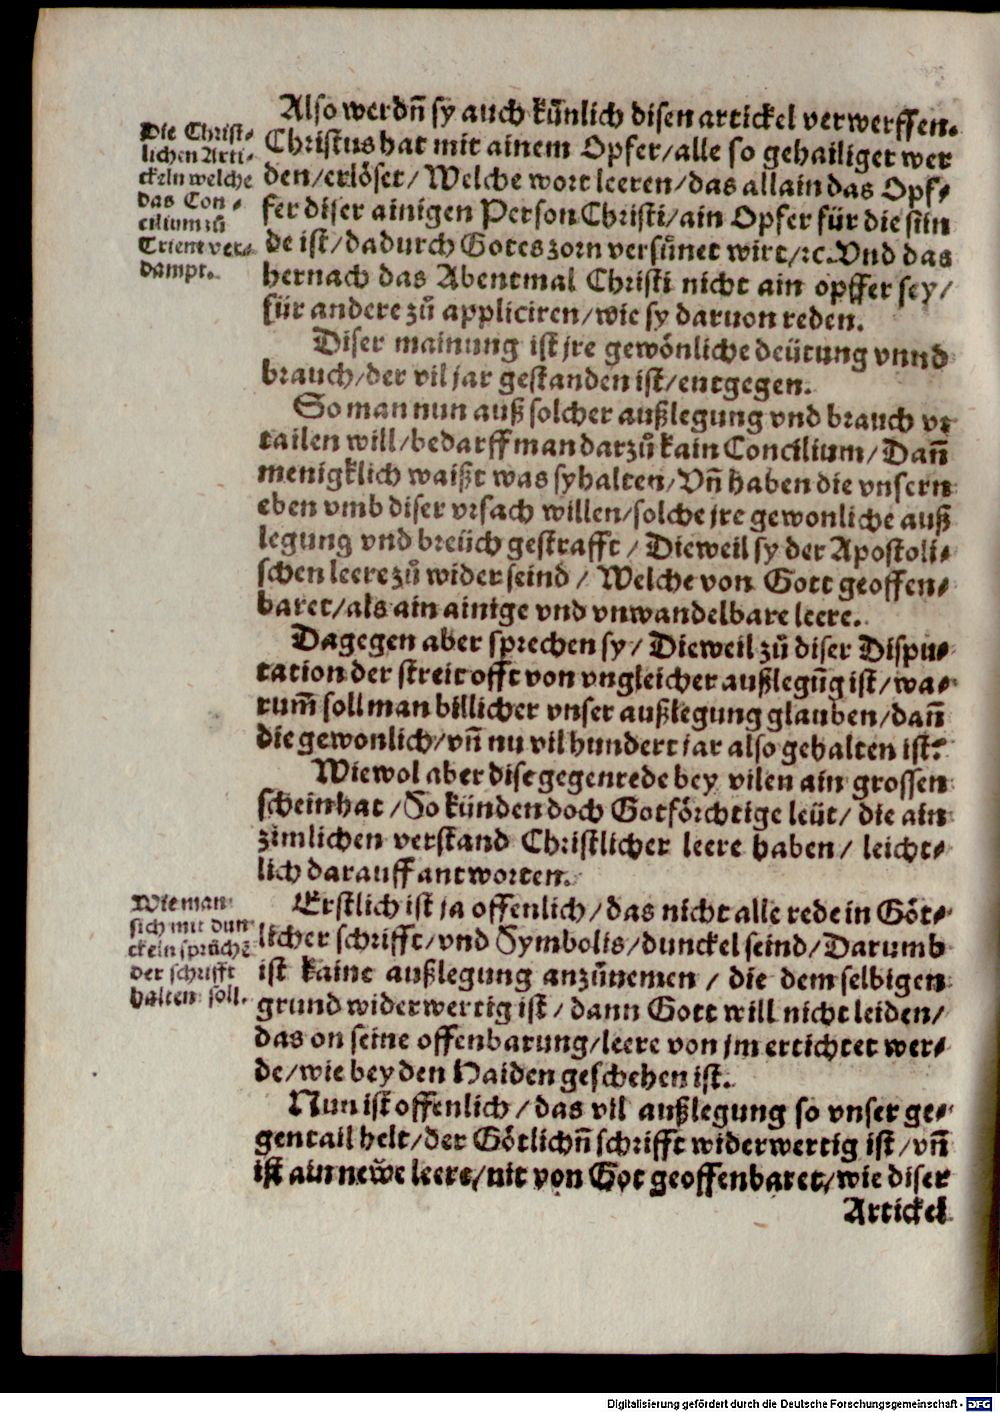 Also werdn̄ sy auch kün̄lich disen artickel verwerffen.
Christus hat mit ainem Opfer/alle so gehailiget wer
den/erlöset/ Welche wort leeren/das allain das Opf-
fer diser ainigen Person Christi/ain Opfer für die sün
de ist/dadurch Gotes zorn versůnet wirt/rc. Vnd das
hernach das Abentmal Christi nicht ain opffer sey/
für andere zů appliciren/wie sy daruon reden.
Diser mainung ist jre gewönliche deütung vnnd
brauch/der vil jar gestanden ist/entgegen.
So man nun auß solcher außlegung vnd brauch vr
tailen will/bedarff man darzů kain Concilium/Dan̄
menigklich waißt was sy halten/Vn̄ haben die vnsern
eben vmb diser vrsach willen/solche jre gewonliche auß
legung vnd breüch gestrafft/ Dieweil sy der Apostoli-
schen leere zů wider seind/ Welche von Gott geoffen-
baret/als ain ainige vnd vnwandelbare leere.
Dagegen aber sprechen sy/ Dieweil zů diser Dispu-
tation der streit offt von vngleicher außlegūg ist/wa-
rum̄ soll man billicher vnser außlegung glauben/dan̄
die gewonlich/vn̄ nu vil hundert jar also gehalten ist?
Wiewol aber dise gegenrede bey vilen ain grossen
schein hat/So künden doch Gotförchtige leüt/ die ain
zimlichen verstand Christlicher leere haben/ leicht-
lich darauff antworten.
Erstlich ist ja offenlich/das nicht alle rede in Göt-
licher schrifft/vnd Symbolis/dunckel seind/Darumb
ist kaine außlegung anzůnemen/ die dem selbigen
grund widerwertig ist/dann Gott will nicht leiden/
das on seine offenbarung/leere von jm ertichtet wer-
de/wie bey den Haiden geschehen ist.
Nun ist offenlich/das vil außlegung so vnser ge-
gentail helt/der Götlichn̄ schrifft widerwertig ist/vn̄
ist ain newe leere/nit von Got geoffenbaret/wie diser
Artickel
Die Christ-
lichen Arti-
ckeln welche
das Con-
cilium zů
Trient ver-
dampt.
Wie man
sich mit dun
ckeln sprüchē
der schrifft
halten soll.
Digitalisierung gefördert durch die Deutsche Forschungsgemeinschaft - DFG